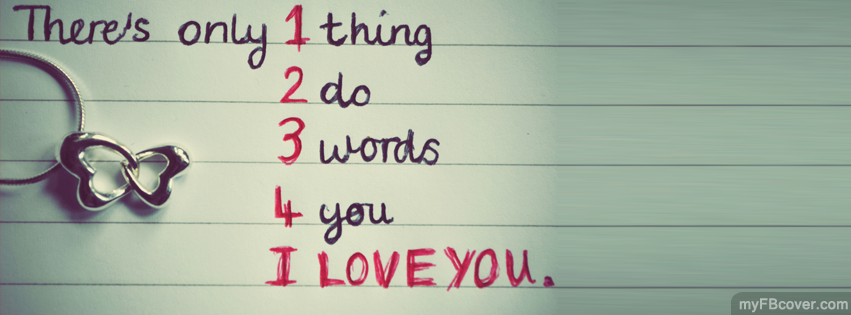 There's only 1 thing
2 do
3 words
4 you
I LOVE YOU.
myFBcover.com